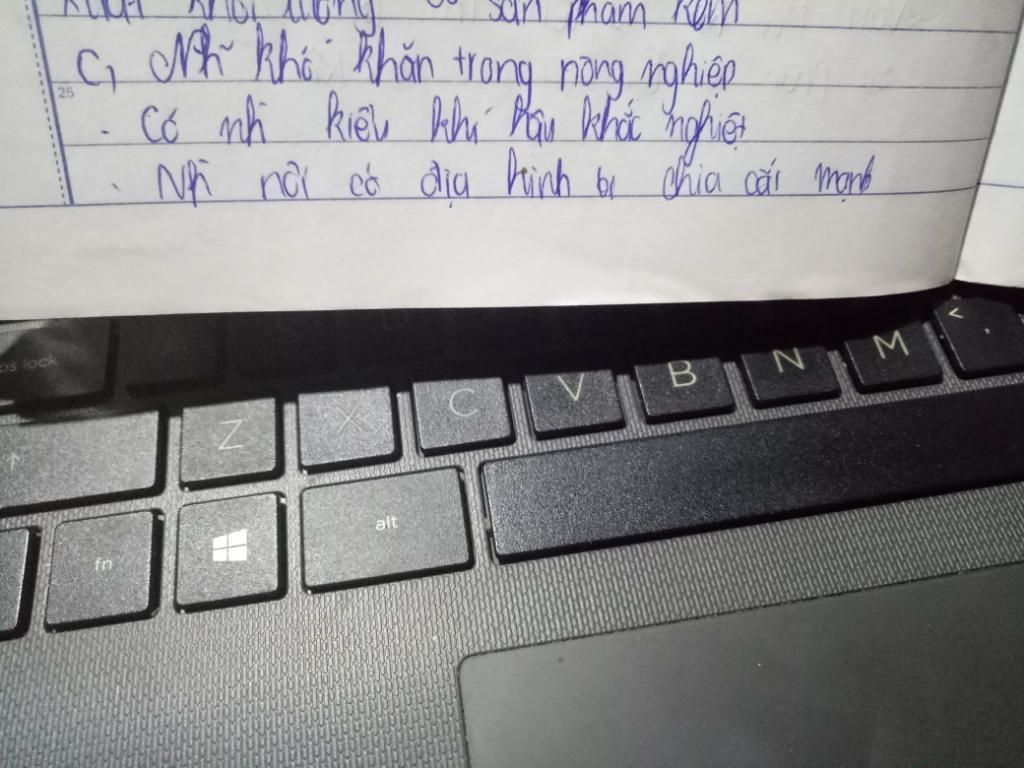 khối lượng sản phẩm kém
C, Nhĩ khó khăn trong nông nghiệp
25
. Có nhì kiểu khí hậu khắc nghiệt
. Nhĩ nơi có địa hình bị chia cắt mạnh
os lock
Z X C V B N M < ,
fn alt